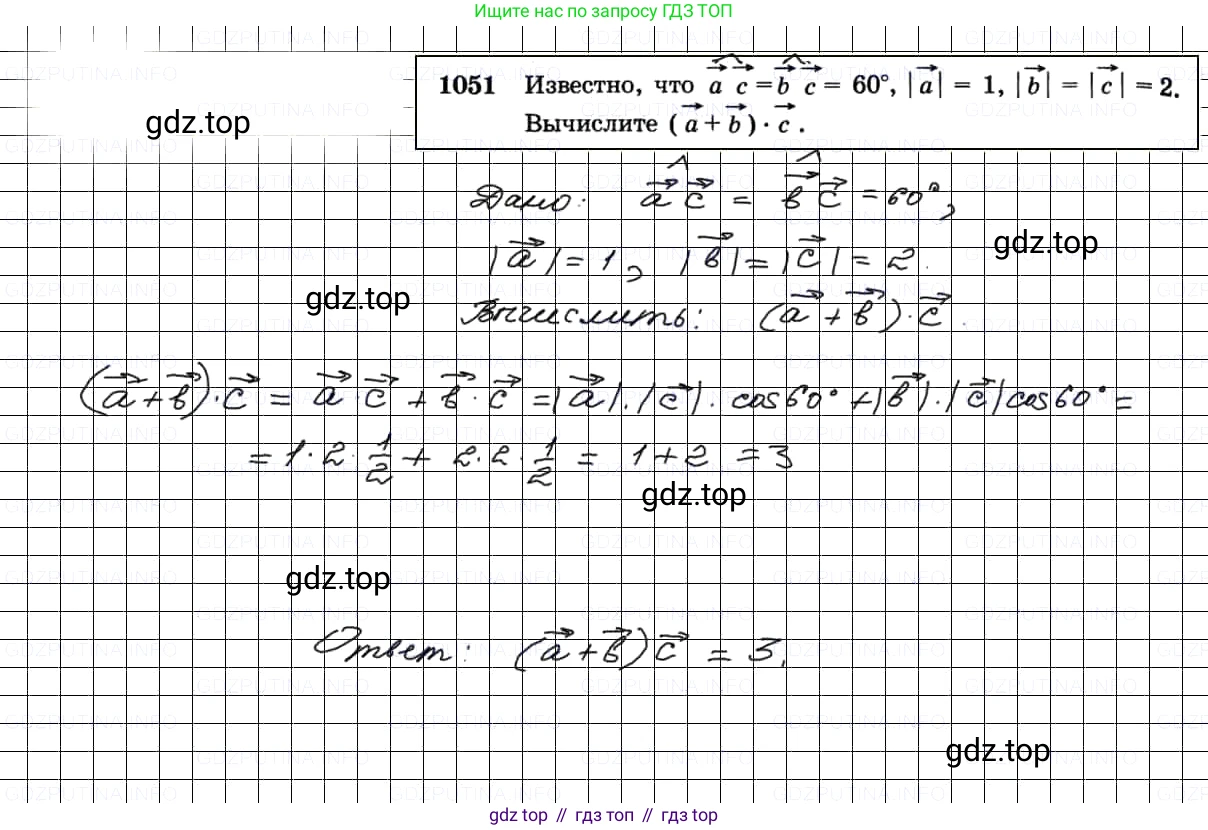 Ищите нас по запросу ГДЗ ТОП
1051 Известно, что a⃗ c⃗ = b⃗ c⃗ = 60°, |a⃗| = 1, |b⃗| = |c⃗| = 2.
Вычислите (a⃗ + b⃗) · c⃗.
gdz.top
Дано: a⃗ c⃗ = в⃗ c⃗ = 60°,
|a⃗| = 1, |в⃗| = |c⃗| = 2.
gdz.top
gdz.top
Вычислить: (a⃗ + в⃗) · c⃗.
(a⃗ + в⃗) · c⃗ = a⃗ · c⃗ + в⃗ · c⃗ = |a⃗| · |c⃗| · cos 60° + |в⃗| · |c⃗| cos 60° =
= 1 · 2 · 1/2 + 2 · 2 · 1/2 = 1 + 2 = 3
gdz.top
gdz.top
Ответ: (a⃗ + в⃗) c⃗ = 3.
gdz.top
gdz top // гдз топ // гдз top
GDZPUTINA.INFO